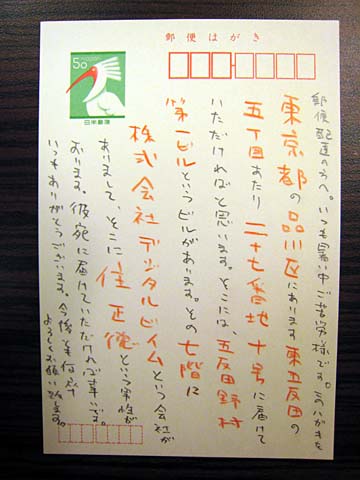 郵便はがき
50
日本郵便
郵便配達の方へ。いつも暑い中ご苦労様です。このハガキを
東京都の品川区にあります東五反田の
五丁目あたり二十七番地十号に届けて
いただければと思います。そこには、五反田野村
第一ビルというビルがあります。その七階に
株式会社デジタルビイムという会社が
ありまして、そこに住正徳という男性が
おります。彼宛に届けていただければ幸いです。
いつもありがとうございます。今後とも何卒
よろしくお願い致します。